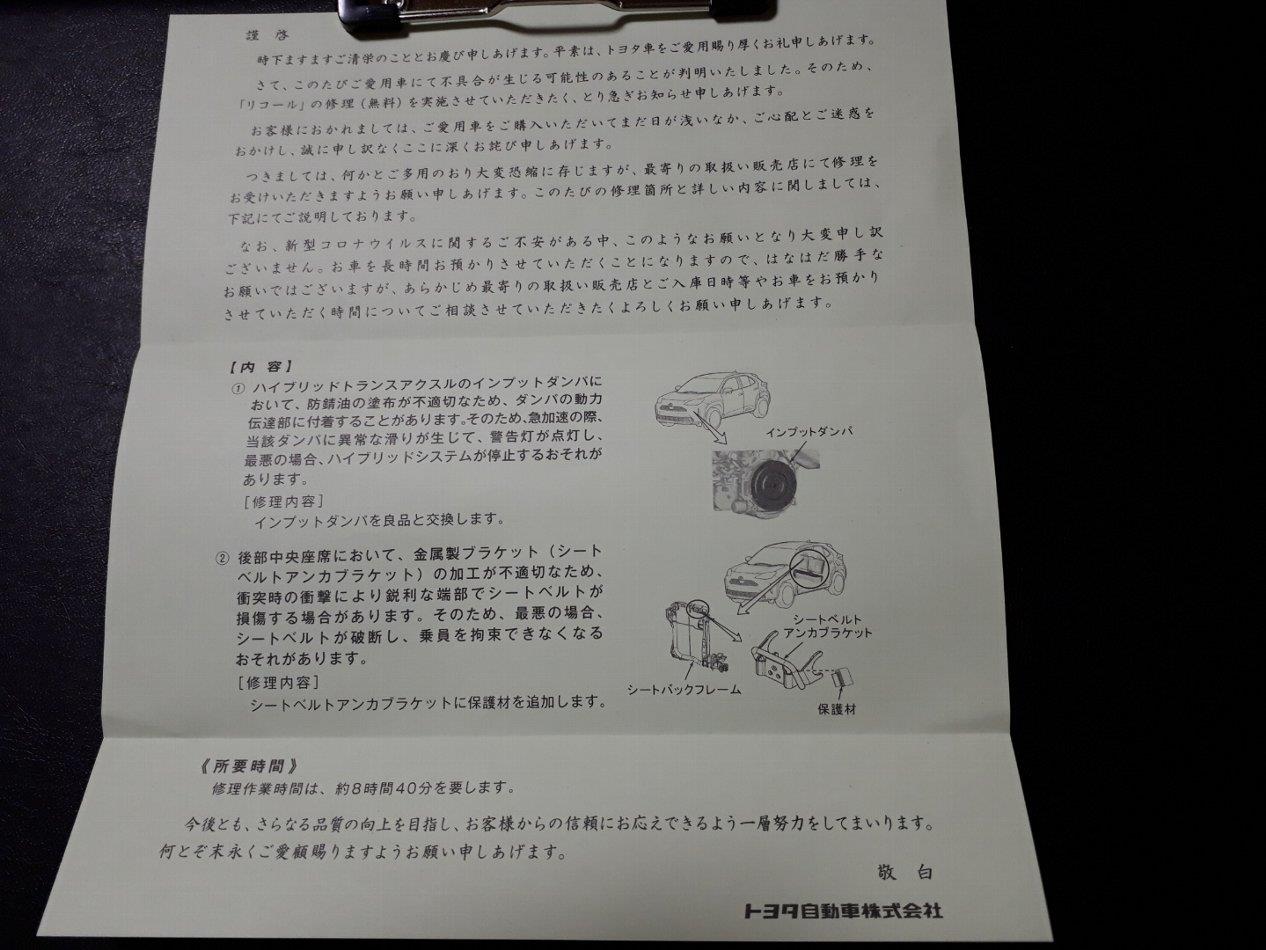 謹啓
時下ますますご清栄のこととお慶び申しあげます。平素は、トヨタ車をご愛用賜り厚くお礼申しあげます。
さて、このたびご愛用車にて不具合が生じる可能性のあることが判明いたしました。そのため、
「リコール」の修理（無料）を実施させていただきたく、とり急ぎお知らせ申しあげます。
お客様におかれましては、ご愛用車をご購入いただいてまだ日が浅いなか、ご心配とご迷惑を
おかけし、誠に申し訳なくここに深くお詫び申しあげます。
つきましては、何かとご多用のおり大変恐縮に存じますが、最寄りの取扱い販売店にて修理を
お受けいただきますようお願い申しあげます。このたびの修理箇所と詳しい内容に関しましては、
下記にてご説明しております。
なお、新型コロナウイルスに関するご不安がある中、このようなお願いとなり大変申し訳
ございません。お車を長時間お預かりさせていただくことになりますので、はなはだ勝手な
お願いではございますが、あらかじめ最寄りの取扱い販売店とご入庫日時等やお車をお預かり
させていただく時間についてご相談させていただきたくよろしくお願い申しあげます。
【内容】
① ハイブリッドトランスアクスルのインプットダンパに
おいて、防錆油の塗布が不適切なため、ダンパの動力
伝達部に付着することがあります。そのため、急加速の際、
当該ダンパに異常な滑りが生じて、警告灯が点灯し、
最悪の場合、ハイブリッドシステムが停止するおそれが
あります。
［修理内容］
インプットダンパを良品と交換します。
インプットダンパ
② 後部中央座席において、金属製ブラケット（シート
ベルトアンカブラケット）の加工が不適切なため、
衝突時の衝撃により鋭利な端部でシートベルトが
損傷する場合があります。そのため、最悪の場合、
シートベルトが破断し、乗員を拘束できなくなる
おそれがあります。
［修理内容］
シートベルトアンカブラケットに保護材を追加します。
シートベルト
アンカブラケット
シートバックフレーム
保護材
《所要時間》
修理作業時間は、約8時間40分を要します。
今後とも、さらなる品質の向上を目指し、お客様からの信頼にお応えできるよう一層努力をしてまいります。
何とぞ末永くご愛顧賜りますようお願い申しあげます。
敬白
トヨタ自動車株式会社